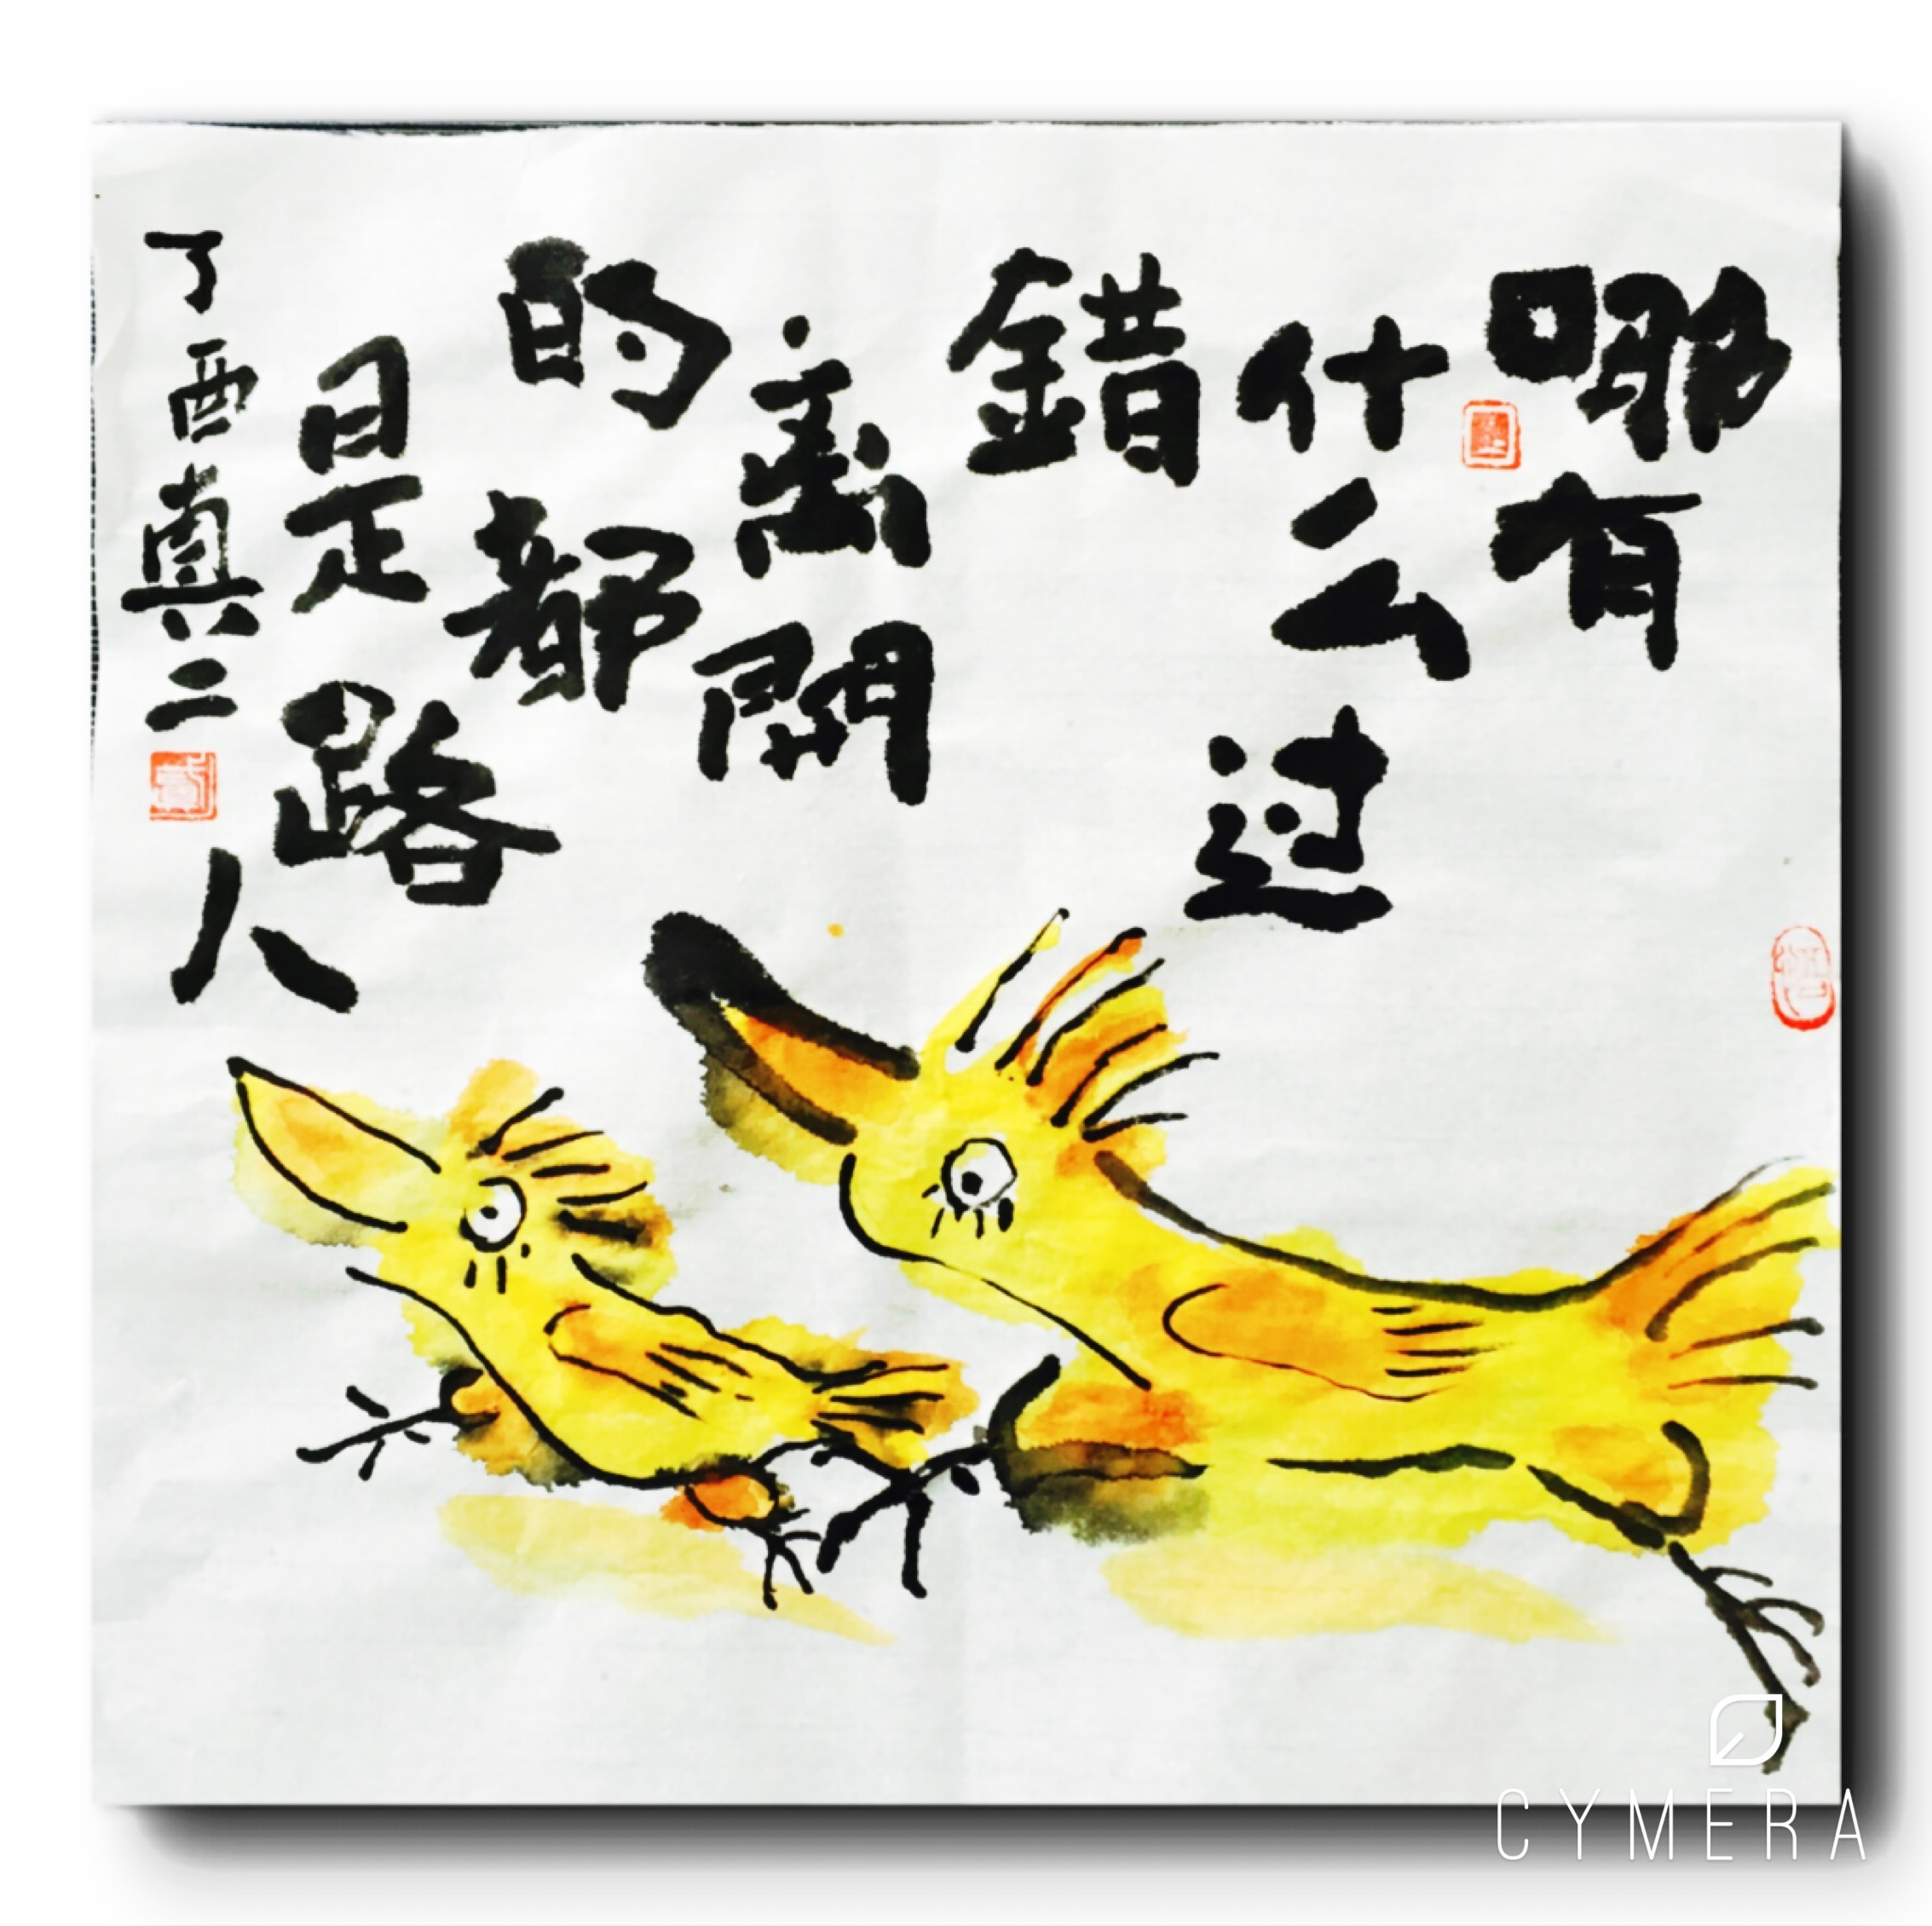 哪有
什么过
錯
离開
的都
是路
人
丁酉真二
CYMERA